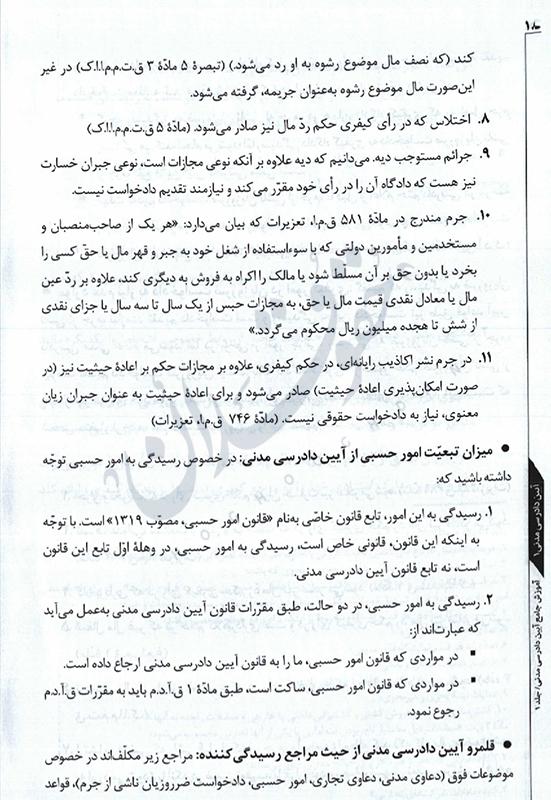 ۱۸
کند (که نصف مال موضوع رشوه به او رد می‌شود.) (تبصرهٔ ۵ مادّهٔ ۳ ق.ت.م.م.ا.ا.ک) در غیر
این‌صورت مال موضوع رشوه به‌عنوان جریمه، گرفته می‌شود.
۸. اختلاس که در رأی کیفری حکم ردّ مال نیز صادر می‌شود. (مادّهٔ ۵ ق.ت.م.م.ا.ا.ک)
۹. جرائم مستوجب دیه. می‌دانیم که دیه علاوه بر آنکه نوعی مجازات است، نوعی جبران خسارت
نیز هست که دادگاه آن را در رأی خود مقرّر می‌کند و نیازمند تقدیم دادخواست نیست.
۱۰. جرم مندرج در مادّهٔ ۵۸۱ ق.م.ا، تعزیرات که بیان می‌دارد: «هر یک از صاحب‌منصبان و
مستخدمین و مأمورین دولتی که با سوءاستفاده از شغل خود به جبر و قهر مال یا حقّ کسی را
بخرد یا بدون حق بر آن مسلّط شود یا مالک را اکراه به فروش به دیگری کند، علاوه بر ردّ عین
مال یا معادل نقدی قیمت مال یا حق، به مجازات حبس از یک سال تا سه سال یا جزای نقدی
از شش تا هجده میلیون ریال محکوم می‌گردد.»
۱۱. در جرم نشر اکاذیب رایانه‌ای، در حکم کیفری، علاوه بر مجازات حکم بر اعادهٔ حیثیت نیز (در
صورت امکان‌پذیری اعادهٔ حیثیت) صادر می‌شود و برای اعادهٔ حیثیت به عنوان جبران زیان
معنوی، نیاز به دادخواست حقوقی نیست. (مادّهٔ ۷۴۶ ق.م.ا، تعزیرات)
● میزان تبعیّت امور حسبی از آیین دادرسی مدنی: در خصوص رسیدگی به امور حسبی توجّه
داشته باشید که:
۱. رسیدگی به این امور، تابع قانون خاصّی به‌نام «قانون امور حسبی، مصوّب ۱۳۱۹» است. با توجّه
به اینکه این قانون، قانونی خاص است، رسیدگی به امور حسبی، در وهلهٔ اوّل تابع این قانون
است، نه تابع قانون آیین دادرسی مدنی.
۲. رسیدگی به امور حسبی، در دو حالت، طبق مقرّرات قانون آیین دادرسی مدنی به‌عمل می‌آید
که عبارت‌اند از:
▪ در مواردی که قانون امور حسبی، ما را به قانون آیین دادرسی مدنی ارجاع داده است.
▪ در مواردی که قانون امور حسبی، ساکت است، طبق مادّهٔ ۱ ق.آ.د.م باید به مقرّرات ق.آ.د.م
رجوع نمود.
● قلمرو آیین دادرسی مدنی از حیث مراجع رسیدگی‌کننده: مراجع زیر مکلّف‌اند در خصوص
موضوعات فوق (دعاوی مدنی، دعاوی تجاری، امور حسبی، دادخواست ضرروزیان ناشی از جرم)، قواعد
آیین دادرسی مدنی ۱
آموزش جامع آیین دادرسی مدنی/ جلد ۱